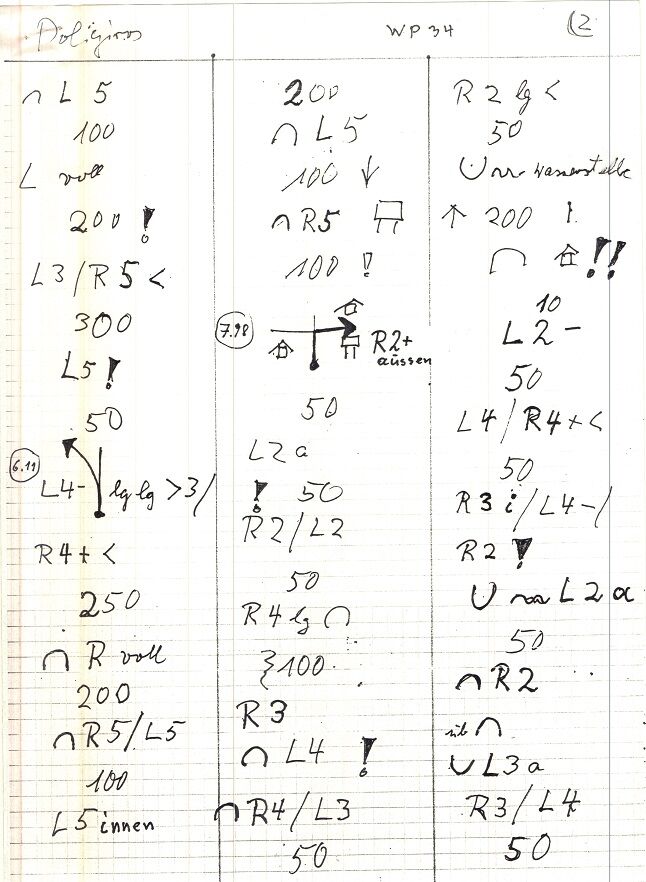 Poligiros
WP 34
2
∩ L 5
100
L voll
200 !
L3/R5 <
300
L5 !
50
6.11
L4- lg lg >3/
R4+ <
250
∩ R voll
200
∩ R5/L5
100
L5 innen
200
∩ L5
100 ↓
∩ R5
100 !
7.98
R2+
aussen
50
L2a
! 50
R2/L2
50
R4 lg ∩
100
R3
∩ L4 !
∩ R4/L3
50
R2 lg <
50
∪
↑ 200 !
∩ !!
10
L2-
50
L4/R4+ <
50
R3 i/L4-/
R2 !
∪ L2a
50
∩ R2
üb ∩
∪ L3a
R3/L4
50